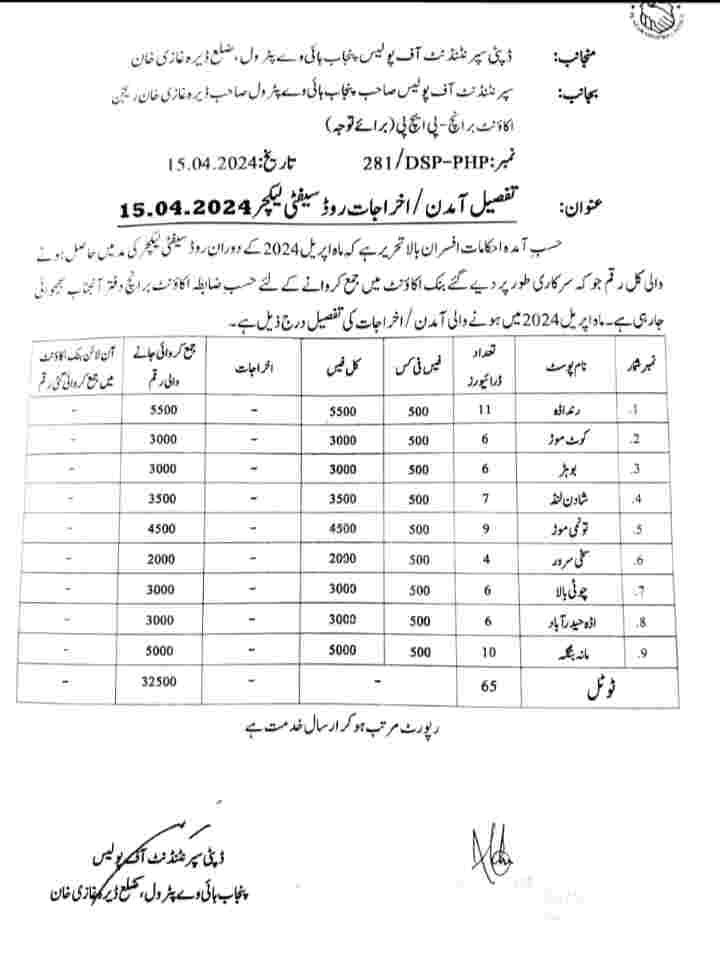 منجانب: ڈپٹی سپرنٹنڈنٹ آف پولیس پنجاب ہائی وے پٹرول، ضلع ڈیرہ غازی خان
بجانب: سپرنٹنڈنٹ آف پولیس صاحب پنجاب ہائی وے پٹرول صاحب ڈیرہ غازی خان ریجن
اکاؤنٹ برانچ-پی ایچ پی (برائے توجہ)
نمبر: 281/DSP-PHP تاریخ: 15.04.2024
عنوان: تفصیل آمدن/اخراجات روڈ سیفٹی لیکچر 15.04.2024
حسب آمدہ احکامات افسران بالا تحریر ہے کہ ماہ اپریل 2024 کے دوران روڈ سیفٹی لیکچر کی مد میں حاصل ہونے
والی کل رقم جو کہ سرکاری طور پر دیے گئے بنک اکاؤنٹ میں جمع کروانے کے لئے حسب ضابطہ اکاؤنٹ برانچ دفتر آنجناب بھجوائی
جا رہی ہے۔ ماہ اپریل 2024 میں ہونے والی آمدن/اخراجات کی تفصیل درج ذیل ہے۔
نمبر شمار نام پوسٹ تعداد ڈرائیورز فیس فی کس کل فیس اخراجات جمع کروائی جانے والی رقم آن لائن بنک اکاؤنٹ میں جمع کروائی گئی رقم
1. رند اڈہ 11 500 5500 - 5500 -
2. کوٹ موڑ 6 500 3000 - 3000 -
3. بوہڑ 6 500 3000 - 3000 -
4. شادن لنڈ 7 500 3500 - 3500 -
5. تونمی موڑ 9 500 4500 - 4500 -
6. سخی سرور 4 500 2000 - 2000 -
7. چوٹی بالا 6 500 3000 - 3000 -
8. اڈہ حیدرآباد 6 500 3000 - 3000 -
9. مانہ بنگلہ 10 500 5000 - 5000 -
ٹوٹل 65 - - 32500 -
رپورٹ مرتب ہو کر ارسال خدمت ہے
ڈپٹی سپرنٹنڈنٹ آف پولیس
پنجاب ہائی وے پٹرول، ضلع ڈیرہ غازی خان